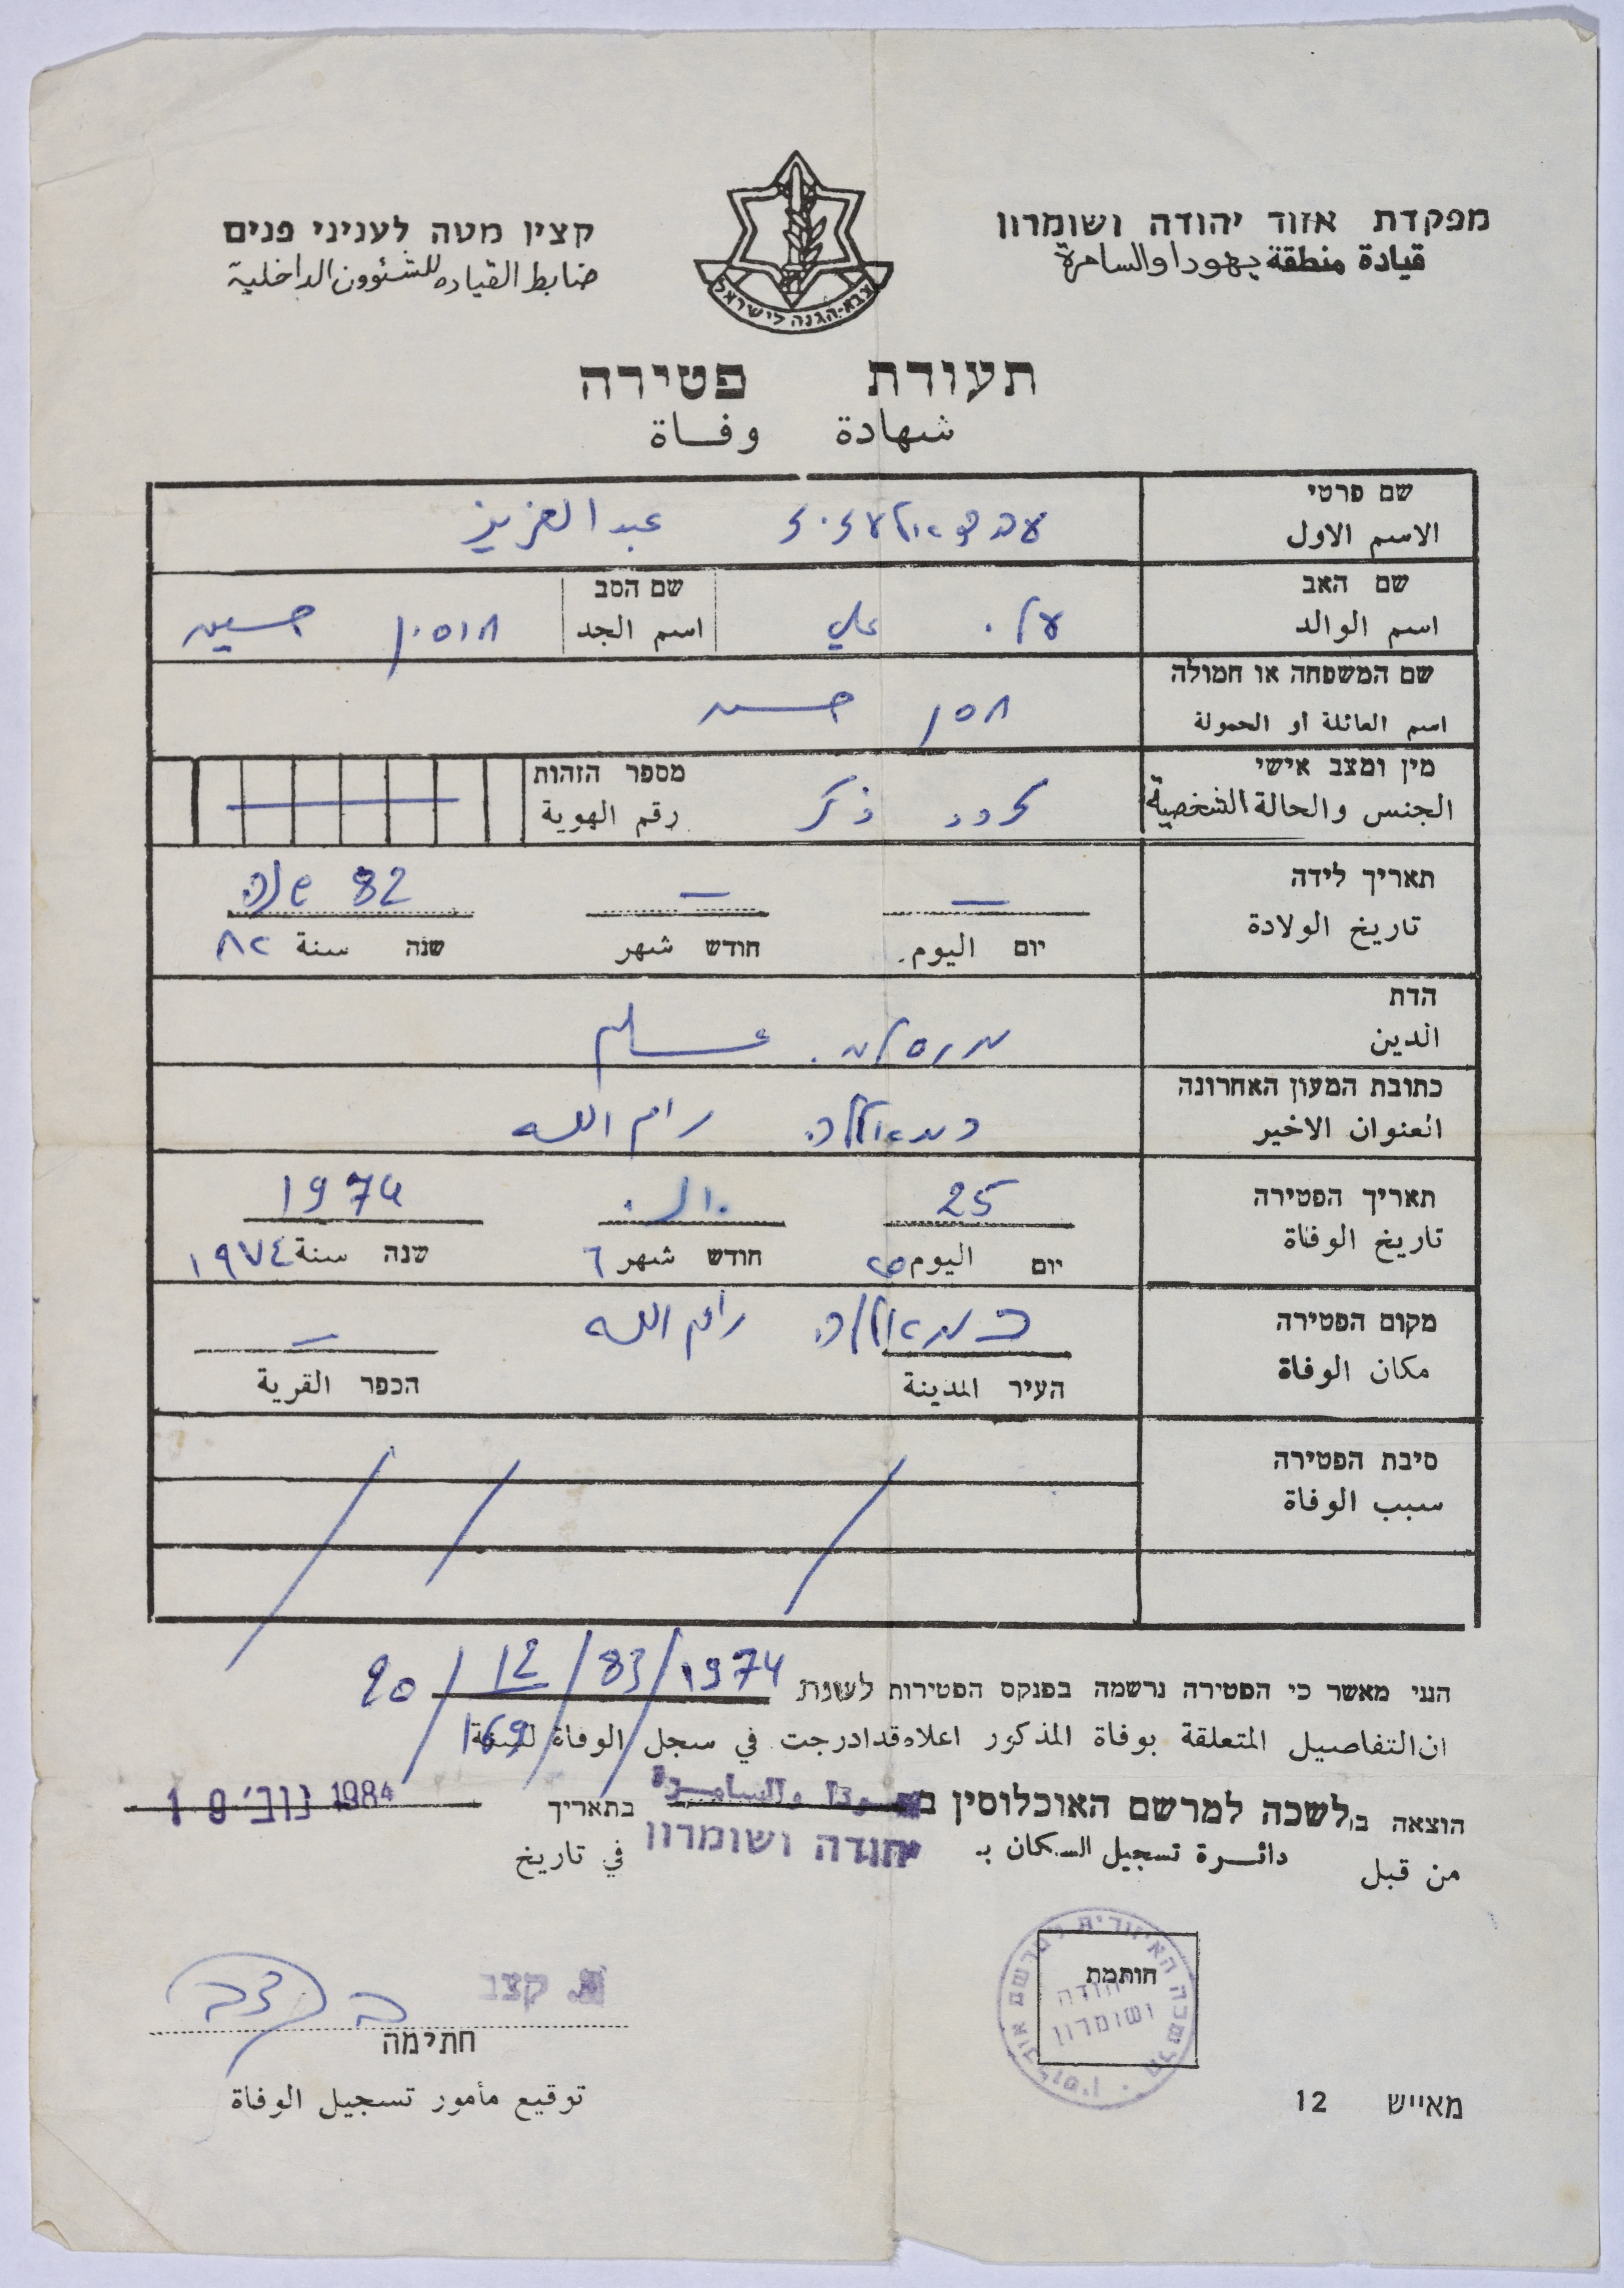 מפקדת אזור יהודה ושומרון
قيادة منطقة يهودا والسامرة
קצין מטה לעניני פנים
ضابط القياده للشئوون الداخلية
צבא-הגנה לישראל
תעודת פטירה
شهادة وفاة
שם פרטי
الاسم الاول
עבד אלעזיז عبد العزيز
שם האב
اسم الوالد
עלי علي
שם הסב
اسم الجد
חוסין حسين
שם המשפחה או חמולה
اسم العائلة او الحمولة
חסן حسن
מין ומצב אישי
الجنس والحالة الشخصية
זכר ذكر
מספר הזהות
رقم الهوية
תאריך לידה
تاريخ الولادة
— — 82 שנה
יום اليوم חודש شهر שנה سنة ٨٢
הדת
الدين
מוסלמי مسلم
כתובת המעון האחרונה
العنوان الاخير
רמאללה رام الله
תאריך הפטירה
تاريخ الوفاة
25 יוני 1974
יום اليوم ٢٥ חודש شهر ٦ שנה سنة ١٩٧٤
מקום הפטירה
مكان الوفاة
רמאללה رام الله —
העיר المدينة הכפר القرية
סיבת הפטירה
سبب الوفاة
הנני מאשר כי הפטירה נרשמה בפנקס הפטירות לשנת 1974/83/12/90
ان التفاصيل المتعلقة بوفاة المذكور اعلاه قد ادرجت في سجل الوفاة للسنة 169
הוצאה ב לשכה למרשם האוכלוסין ב والسامرة בתאריך 19 נוב' 1984
من قبل دائرة تسجيل السكان بـ יהודה ושומרון في تاريخ
חותמת
הלשכה האיזורית למרשם אוכלוסין
יהודה ושומרון
קצב
חתימה
توقيع مأمور تسجيل الوفاة
מאייש 12